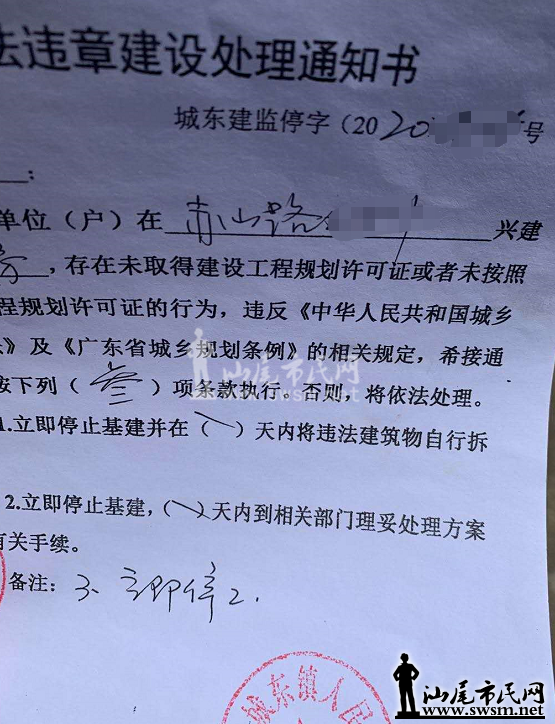 法违章建设处理通知书
城东建监停字（2020 号
：
单位（户）在 赤山路 兴建
，存在未取得建设工程规划许可证或者未按照
程规划许可证的行为，违反《中华人民共和国城乡
》及《广东省城乡规划条例》的相关规定，希接通
按下列（叁）项条款执行。否则，将依法处理。
1.立即停止基建并在（ ）天内将违法建筑物自行拆
2.立即停止基建，（ ）天内到相关部门理妥处理方案
有关手续。
备注：3、立即停工.
城东镇人民
汕尾市民网
www.swsm.net
汕尾市民网
www.swsm.net